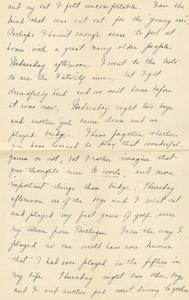 and my cut I felt uncomfortable. I am the
kind that was cut out for the young ones
Perhaps I haven't enough sense to feel at
home with a great many older people.
Wednesday afternoon I went to the
to see the Nativity but I got
dreadfully tired and we went home before
it was over. Wednesday night two boys
and another girl came down and we
played bridge. I have forgotten whether
you have learned to play that wonderful
game or not, but I rather imagine that
you thought more to work, and more
important things than bridge. Thursday
afternoon one of the boys and I went out
and played my first game of golf since
my return from Michigan. From the way I
played no one would have ever known
that I had ever played in the fifties in
my life. Thursday night two other boys
and I and another girl went driving together